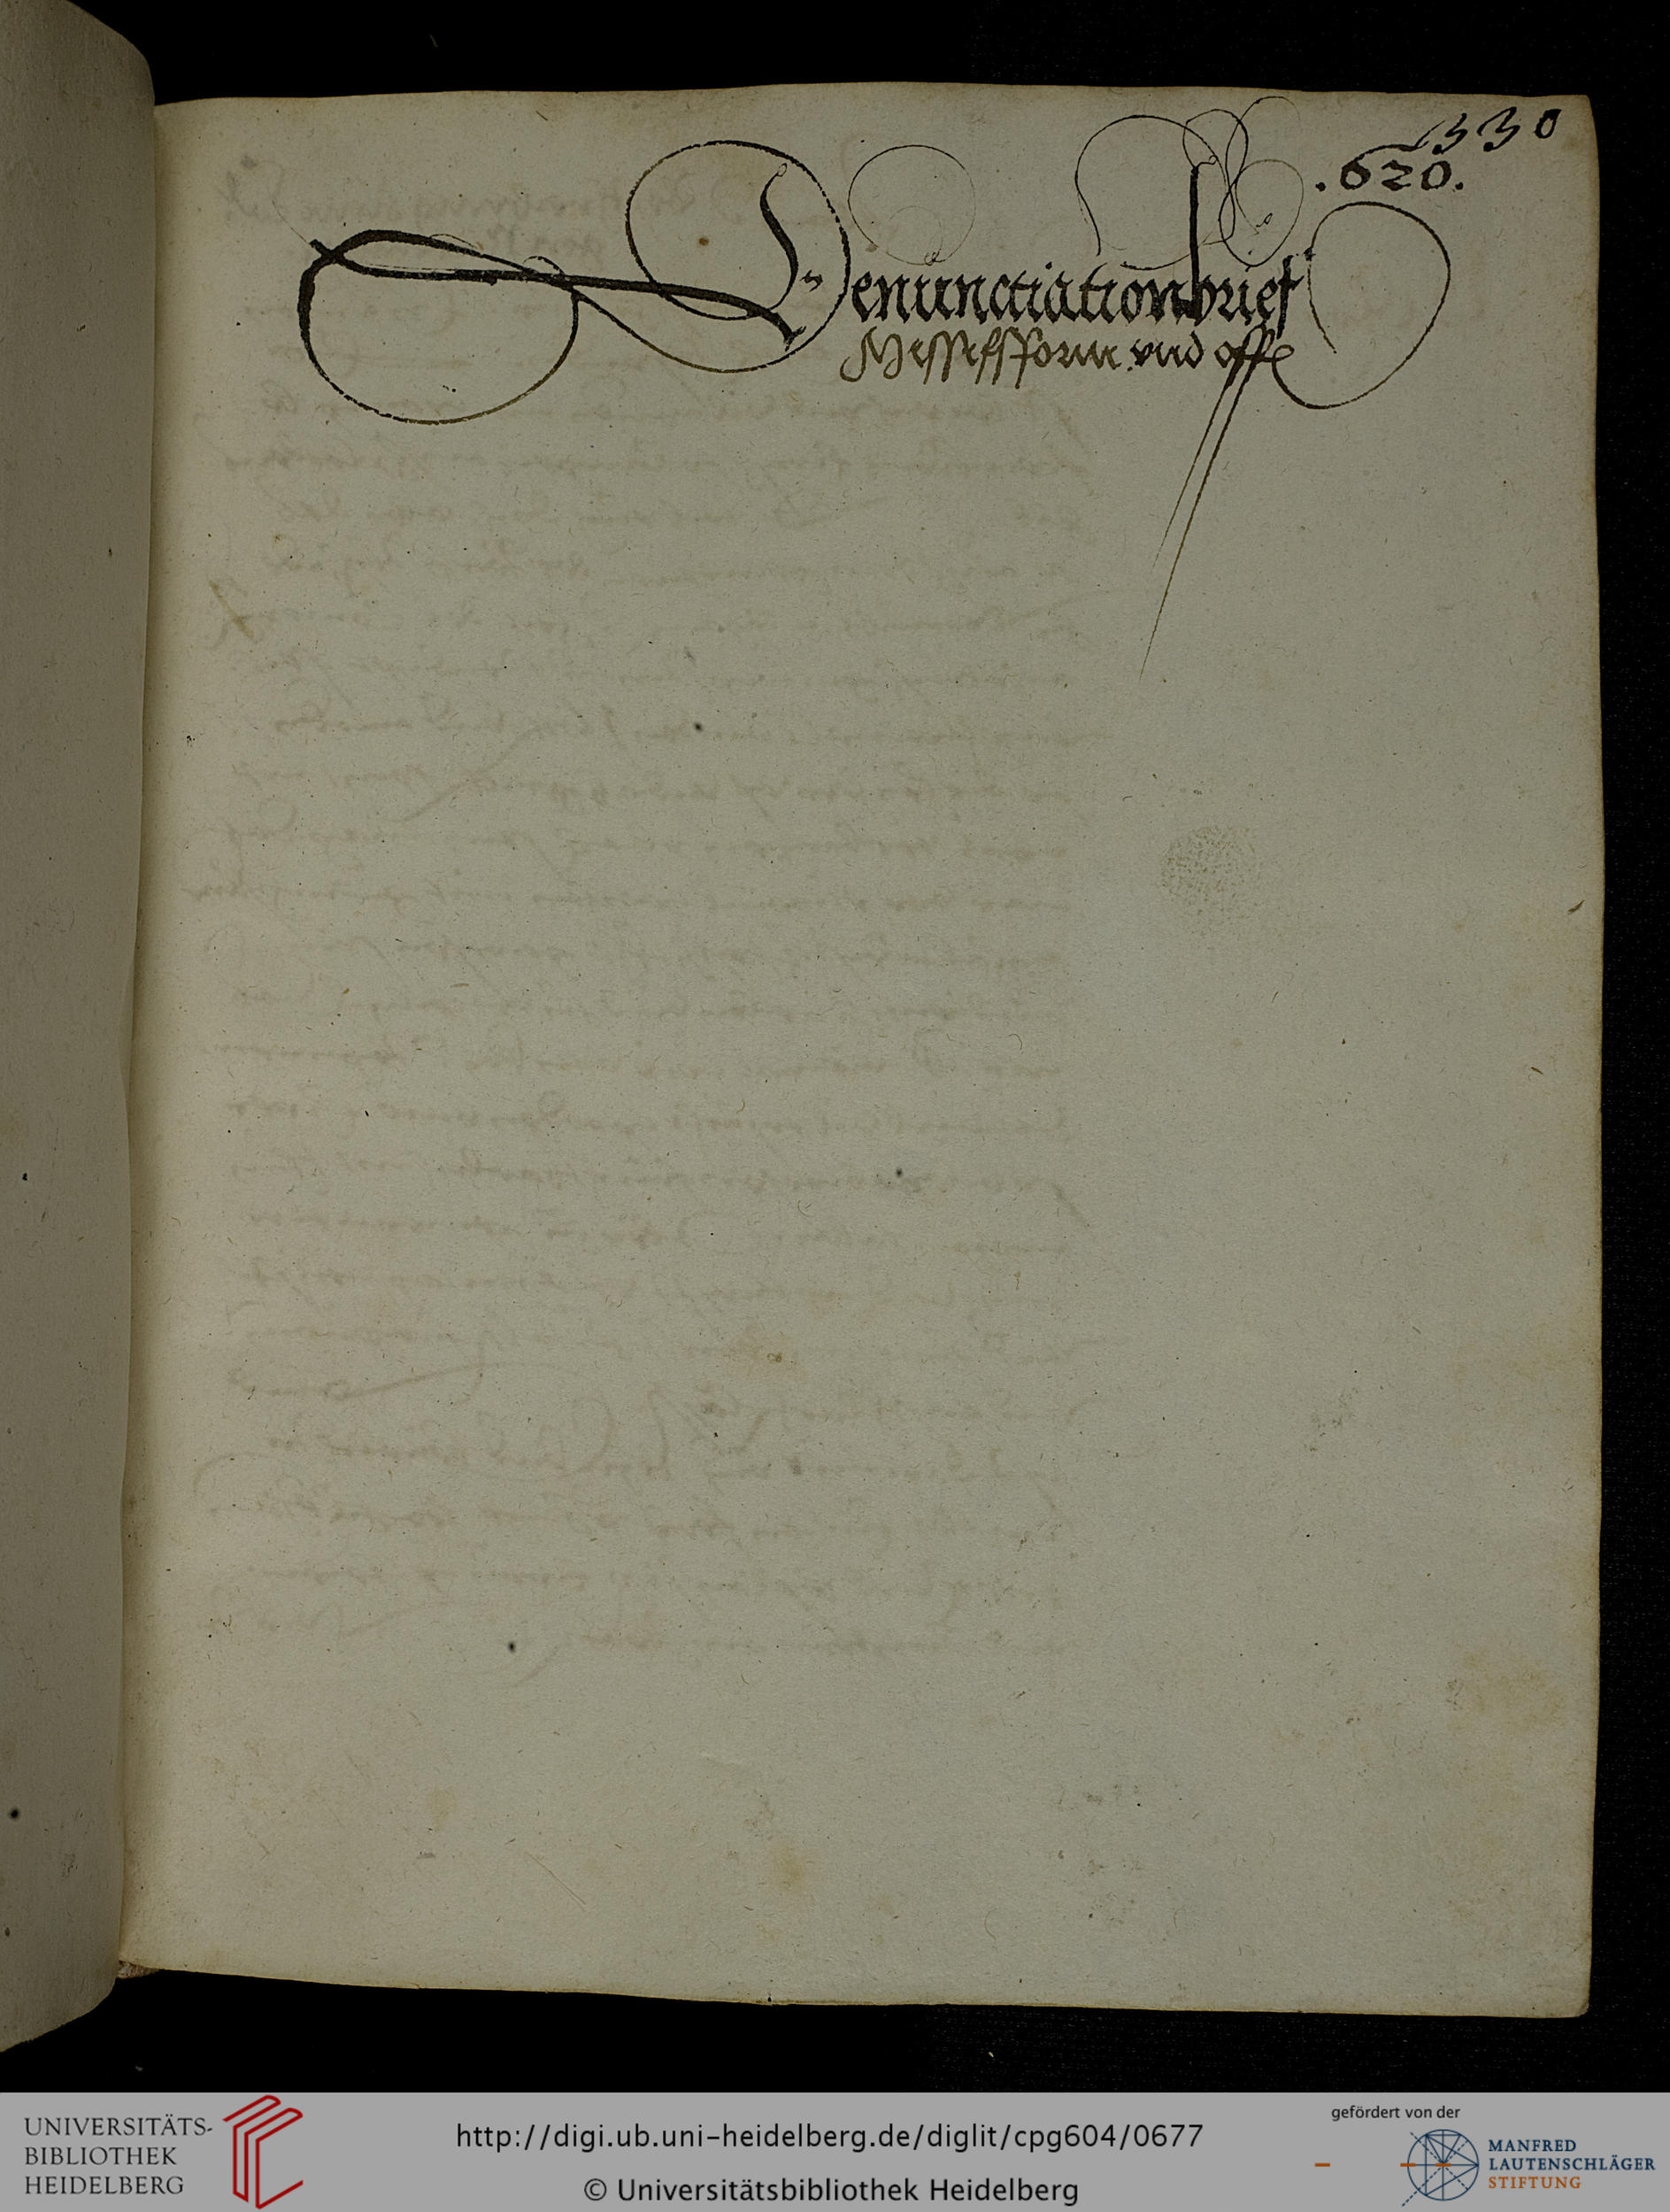 330
.620.
Denunctiationbrief
Messesform vnd off
UNIVERSITÄTS-
BIBLIOTHEK
HEIDELBERG
http://digi.ub.uni-heidelberg.de/diglit/cpg604/0677
© Universitätsbibliothek Heidelberg
gefördert von der
MANFRED
LAUTENSCHLÄGER
STIFTUNG